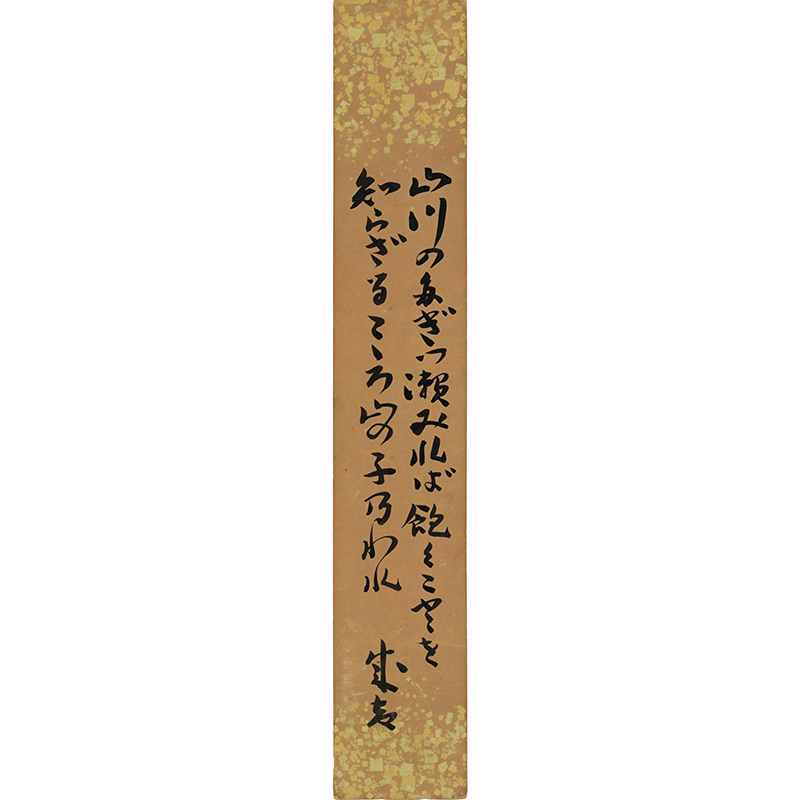 山川のたぎつ瀬みれば飽くことを
知らざるこころ山の子乃われ